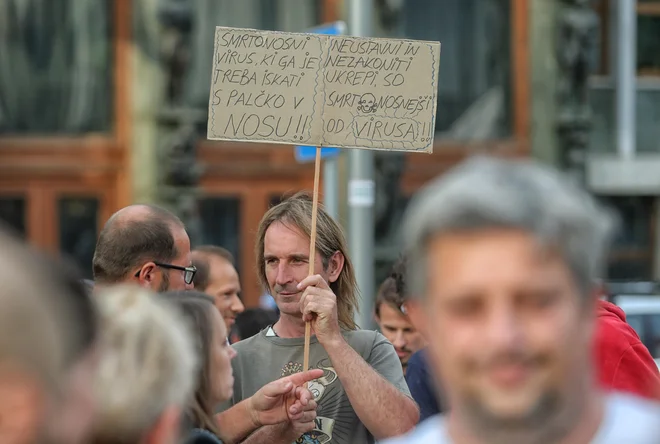 SMRTONOSNI
VIRUS, KI GA JE
TREBA ISKATI
S PALČKO V
NOSU!!!
NEUSTAVNI IN
NEZAKONITI
UKREPI, SO
SMRTONOSNEJŠI
OD VIRUSA!!!